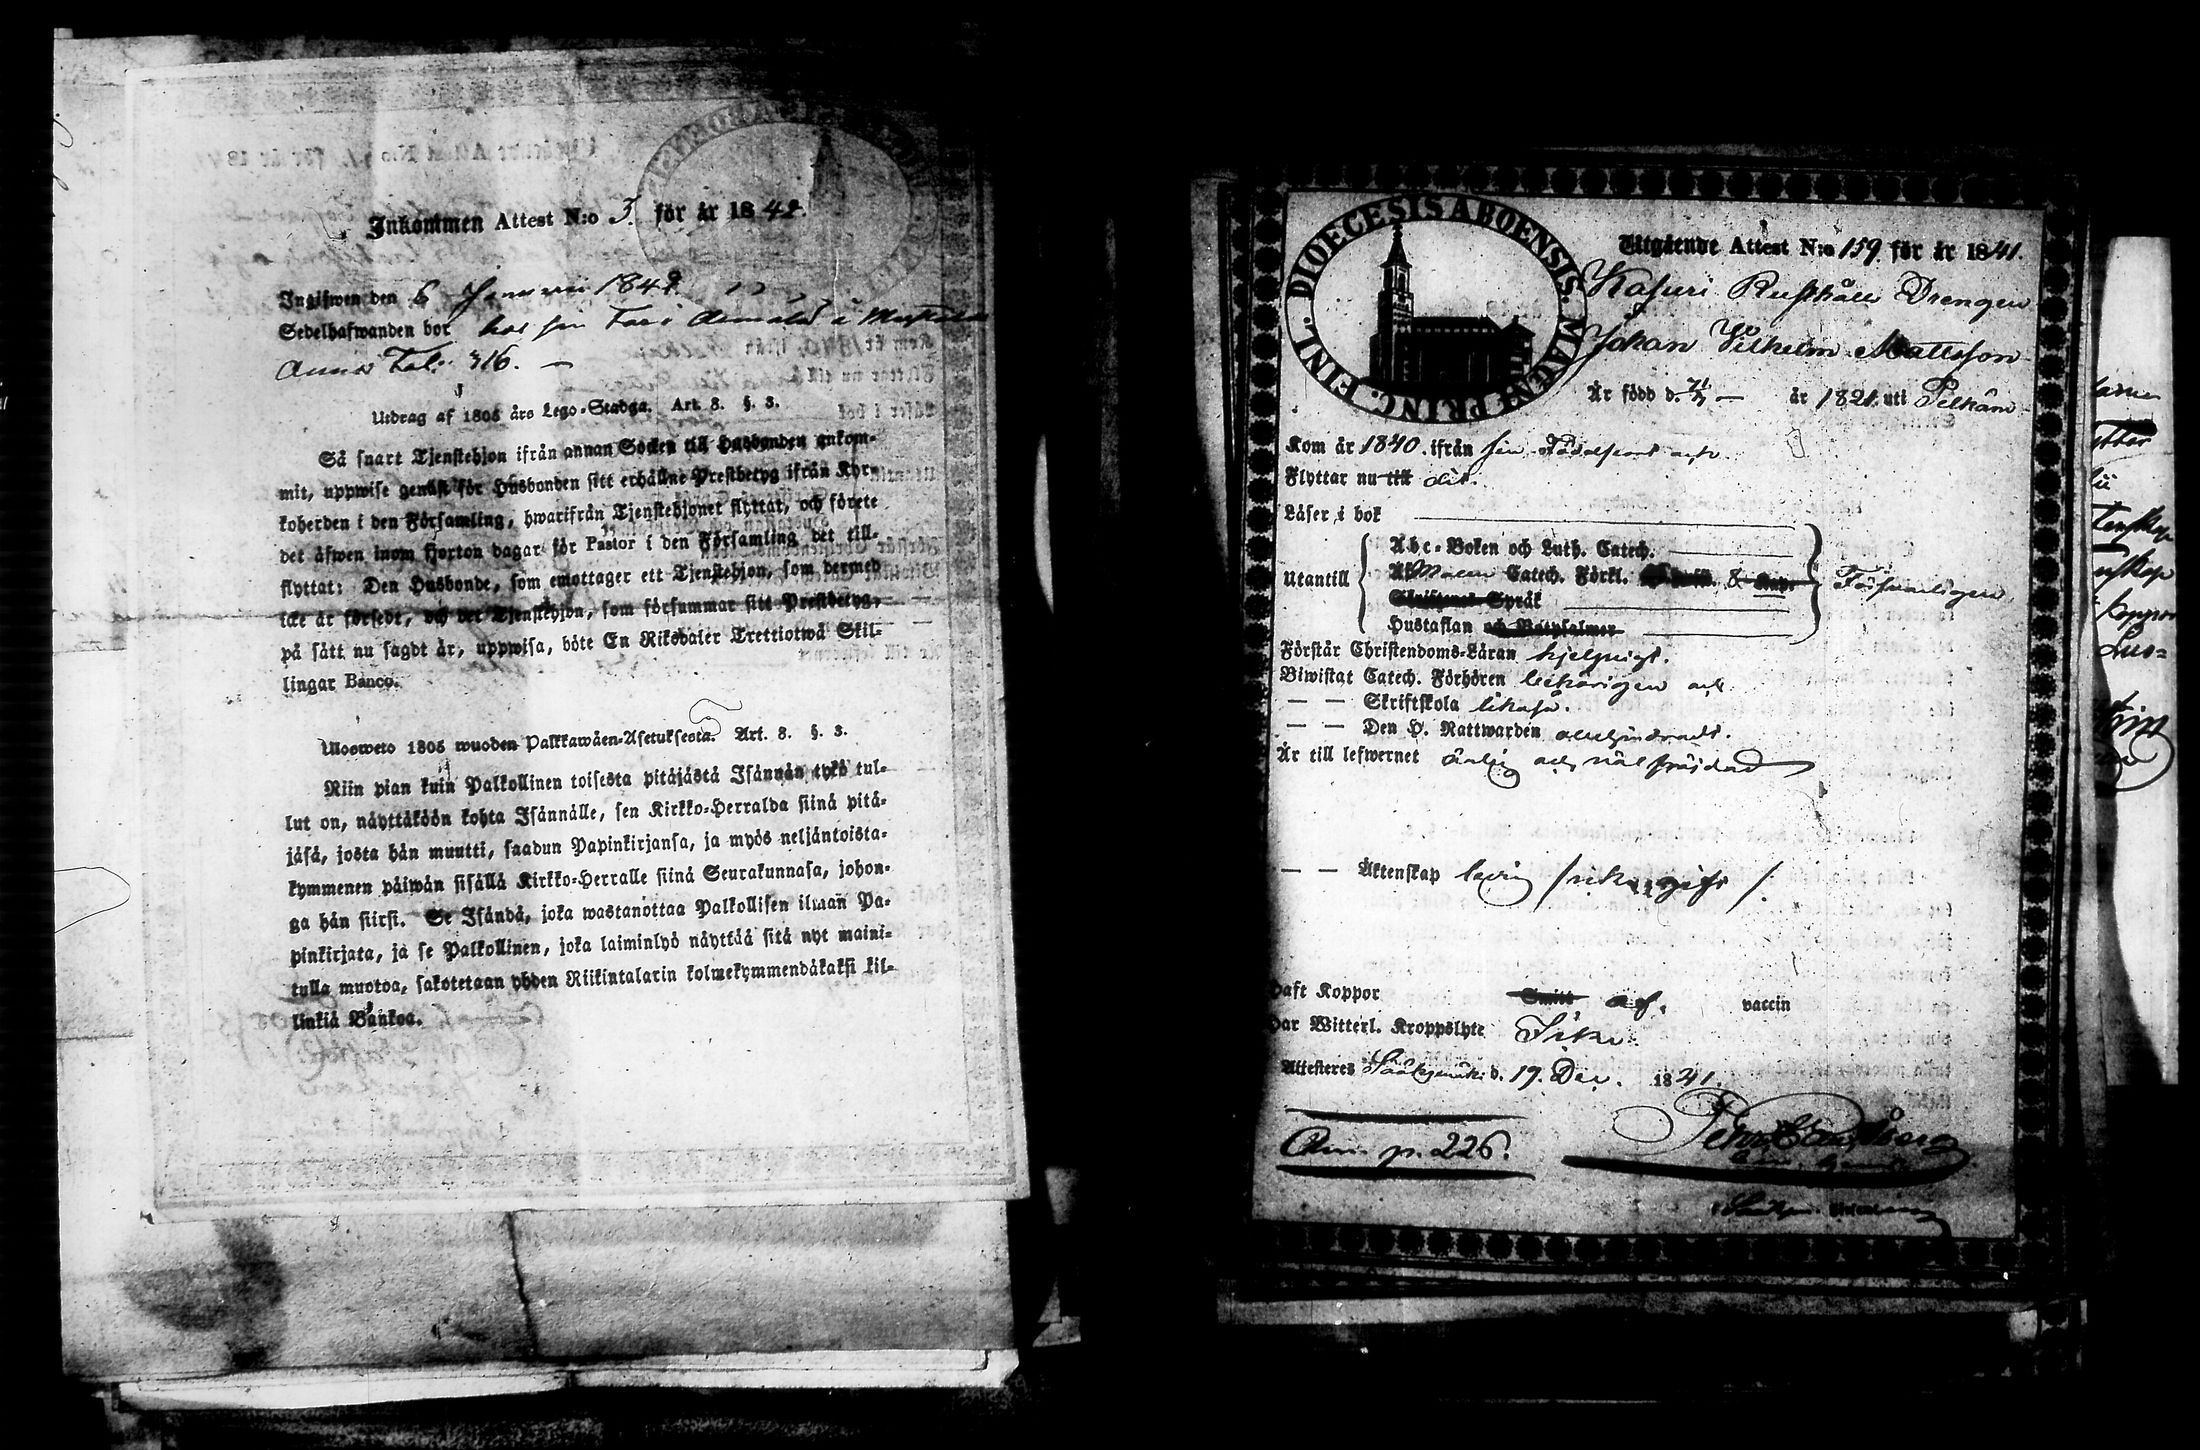 Inkommen Attest N:o 3. för år 1842.
Ingifwen den 6 Januarii 1842.
Sedelhafwanden bor hos sin Far
Fol: 316. —
Utdrag af 1805 års Lego-Stadga. Art. 8. §. 3.
Så snart Tjenstehjon ifrån annan Socken till Husbonden ankom-
mit, uppwise genast för Husbonden sitt erhållne Prestbetyg ifrån Kyr-
koherden i den Församling, hwarifrån Tjenstehjonet flyttat, och förete
det äfwen inom fjorton dagar för Pastor i den Församling det till-
flyttat: Den Husbonde, som emottager ett Tjenstehjon, som dermed
icke är försedt, och det Tjenstehjon, som försummar sitt Prestbetyg,
på sätt nu sagdt är, uppwisa, böte En Riksdaler Trettiotwå Skil-
lingar Banco.
Ulosweto 1805 wuoden Palkkawäen-Asetuksesta. Art. 8. §. 3.
Niin pian kuin Palkollinen toisesta pitäjästä Isännän tykö tul-
lut on, näyttäköön kohta Isännälle, sen Kirkko-Herralda siinä pitä-
jäsä, josta hän muutti, saadun Papinkirjansa, ja myös neljäntoista-
kymmenen päiwän sisällä Kirkko-Herralle siinä Seurakunnasa, johon-
ga hän siirsi. Se Isändä, joka wastanottaa Palkollisen ilman Pa-
pinkirjata, ja se Palkollinen, joka laiminlyö näyttää sitä nyt maini-
tulla muotoa, sakotetaan yhden Riikintalarin kolmekymmendäkaksi kil-
linkiä Bankoa.
DIOECESIS ABOENSIS. MAGNI PRINC. FINL.
Utgående Attest N:o 159 för år 1841.
Rusthålls Drengen
Johan Vilhelm Mattsson
Är född d. år 1821 uti Pelkäne
Kom år 1840. ifrån sin Födelseort och
Flyttar nu till dit.
Läser i bok
Utantill
Abc-Boken och Luth. Catech.
Catech. Förkl.
Skriftenes Språk
Hustaflan och Botpsalmer
Förstår Christendoms-Läran hjelpligt.
Biwistat Catech. Förhören behörigen och
— — Skriftskola likaså.
— — Den H. Nattwarden
Är till lefwernet ärlig och väl frejdad
— — Äktenskap ledig /icke gift/.
Haft Koppor Smitt af. vaccin
Har Witterl. Kroppslyte Icke.
Attesteres Sääksmäki d. 19. Dec. 1841.
p. 226.